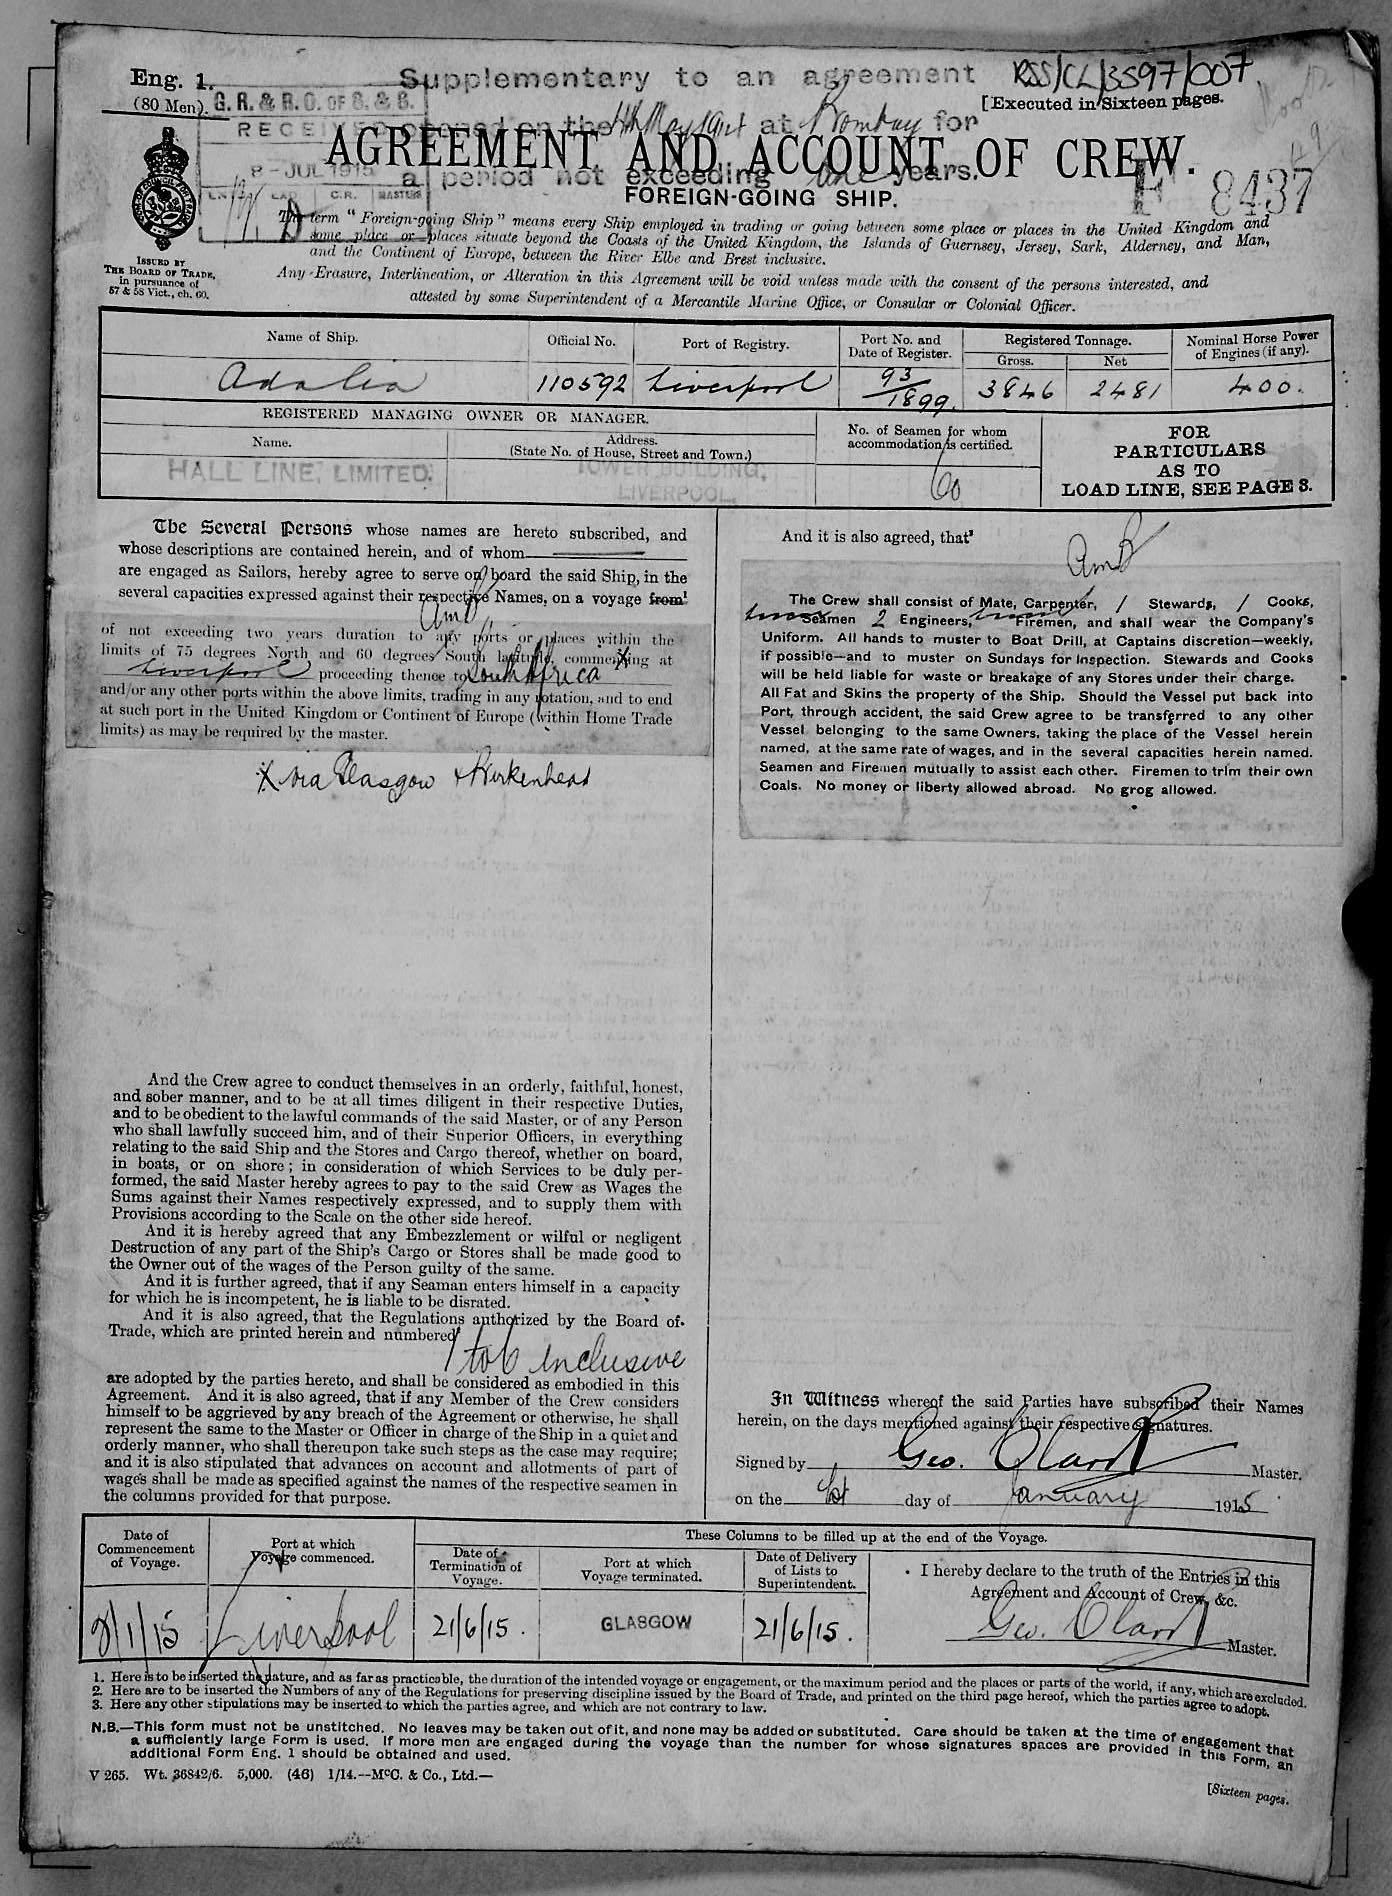 Eng. 1.
(80 Men).
Supplementary to an agreement
RSS/CL/3597/007
[Executed in Sixteen pages.
G. R. & R. O. OF S. & S.
RECEIVED
8 - JUL 1915
C.R. MASTERS
opened on the 4th May 1914 at Bombay for
a period not exceeding one years.
AGREEMENT AND ACCOUNT OF CREW.
FOREIGN-GOING SHIP.
F 8437
ISSUED BY
THE BOARD OF TRADE,
in pursuance of
57 & 58 Vict., ch. 60.
The term "Foreign-going Ship" means every Ship employed in trading or going between some place or places in the United Kingdom and
some place or places situate beyond the Coasts of the United Kingdom, the Islands of Guernsey, Jersey, Sark, Alderney, and Man,
and the Continent of Europe, between the River Elbe and Brest inclusive.
Any Erasure, Interlineation, or Alteration in this Agreement will be void unless made with the consent of the persons interested, and
attested by some Superintendent of a Mercantile Marine Office, or Consular or Colonial Officer.
Name of Ship. Official No. Port of Registry. Port No. and Date of Register. Registered Tonnage. Gross. Net Nominal Horse Power of Engines (if any).
Adalia 110592 Liverpool 93/1899. 3846 2481 400.
REGISTERED MANAGING OWNER OR MANAGER.
Name. Address. (State No. of House, Street and Town.) No. of Seamen for whom accommodation is certified.
HALL LINE, LIMITED. TOWER BUILDING, LIVERPOOL. 60
FOR
PARTICULARS
AS TO
LOAD LINE, SEE PAGE 3.
The Several Persons whose names are hereto subscribed, and
whose descriptions are contained herein, and of whom
are engaged as Sailors, hereby agree to serve on board the said Ship, in the
several capacities expressed against their respective Names, on a voyage from¹
of not exceeding two years duration to any ports or places within the
limits of 75 degrees North and 60 degrees South latitude, commencing at
Liverpool X proceeding thence to South Africa
and/or any other ports within the above limits, trading in any rotation, and to end
at such port in the United Kingdom or Continent of Europe (within Home Trade
limits) as may be required by the master.
X via Glasgow & Birkenhead
And the Crew agree to conduct themselves in an orderly, faithful, honest,
and sober manner, and to be at all times diligent in their respective Duties,
and to be obedient to the lawful commands of the said Master, or of any Person
who shall lawfully succeed him, and of their Superior Officers, in everything
relating to the said Ship and the Stores and Cargo thereof, whether on board,
in boats, or on shore; in consideration of which Services to be duly per-
formed, the said Master hereby agrees to pay to the said Crew as Wages the
Sums against their Names respectively expressed, and to supply them with
Provisions according to the Scale on the other side hereof.
And it is hereby agreed that any Embezzlement or wilful or negligent
Destruction of any part of the Ship's Cargo or Stores shall be made good to
the Owner out of the wages of the Person guilty of the same.
And it is further agreed, that if any Seaman enters himself in a capacity
for which he is incompetent, he is liable to be disrated.
And it is also agreed, that the Regulations authorized by the Board of
Trade, which are printed herein and numbered²
1 to 6 inclusive
are adopted by the parties hereto, and shall be considered as embodied in this
Agreement. And it is also agreed, that if any Member of the Crew considers
himself to be aggrieved by any breach of the Agreement or otherwise, he shall
represent the same to the Master or Officer in charge of the Ship in a quiet and
orderly manner, who shall thereupon take such steps as the case may require;
and it is also stipulated that advances on account and allotments of part of
wages shall be made as specified against the names of the respective seamen in
the columns provided for that purpose.
And it is also agreed, that³
The Crew shall consist of Mate, Carpenter, 1 Stewards, 1 Cooks,
Seamen 2 Engineers, Firemen, and shall wear the Company's
Uniform. All hands to muster to Boat Drill, at Captains discretion—weekly,
if possible—and to muster on Sundays for Inspection. Stewards and Cooks
will be held liable for waste or breakage of any Stores under their charge.
All Fat and Skins the property of the Ship. Should the Vessel put back into
Port, through accident, the said Crew agree to be transferred to any other
Vessel belonging to the same Owners, taking the place of the Vessel herein
named, at the same rate of wages, and in the several capacities herein named.
Seamen and Firemen mutually to assist each other. Firemen to trim their own
Coals. No money or liberty allowed abroad. No grog allowed.
In Witness whereof the said Parties have subscribed their Names
herein, on the days mentioned against their respective signatures.
Signed by Geo. Clark Master.
on the 1st day of January 1915
These Columns to be filled up at the end of the Voyage.
Date of Commencement of Voyage. Port at which Voyage commenced. Date of Termination of Voyage. Port at which Voyage terminated. Date of Delivery of Lists to Superintendent. I hereby declare to the truth of the Entries in this Agreement and Account of Crew, &c.
8/1/15 Liverpool 21/6/15. GLASGOW 21/6/15. Geo. Clark Master.
1. Here is to be inserted the nature, and as far as practicable, the duration of the intended voyage or engagement, or the maximum period and the places or parts of the world, if any, which are excluded.
2. Here are to be inserted the Numbers of any of the Regulations for preserving discipline issued by the Board of Trade, and printed on the third page hereof, which the parties agree to adopt.
3. Here any other stipulations may be inserted to which the parties agree, and which are not contrary to law.
N.B.—This form must not be unstitched. No leaves may be taken out of it, and none may be added or substituted. Care should be taken at the time of engagement that
a sufficiently large Form is used. If more men are engaged during the voyage than the number for whose signatures spaces are provided in this Form, an
additional Form Eng. 1 should be obtained and used.
V 265. Wt. 36842/6. 5,000. (46) 1/14.--McC. & Co., Ltd.—
[Sixteen pages.